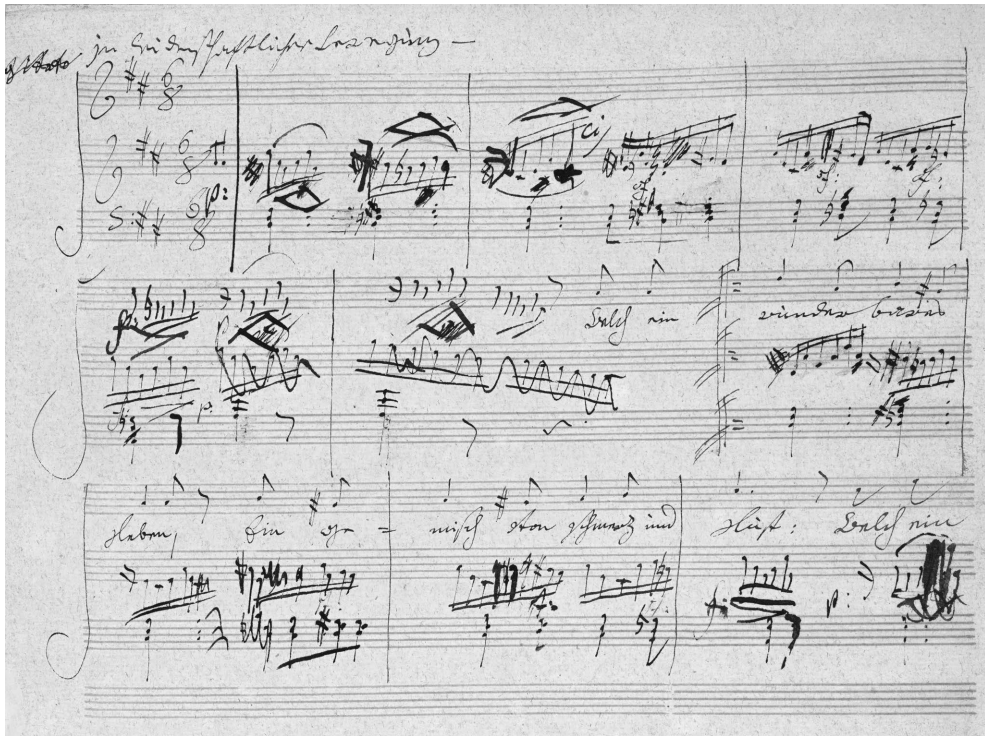 In leidenschaftlicher Bewegung —
Welch ein wunderbares
Leben, Ein Ge = misch von schmerz und Lust: Welch ein